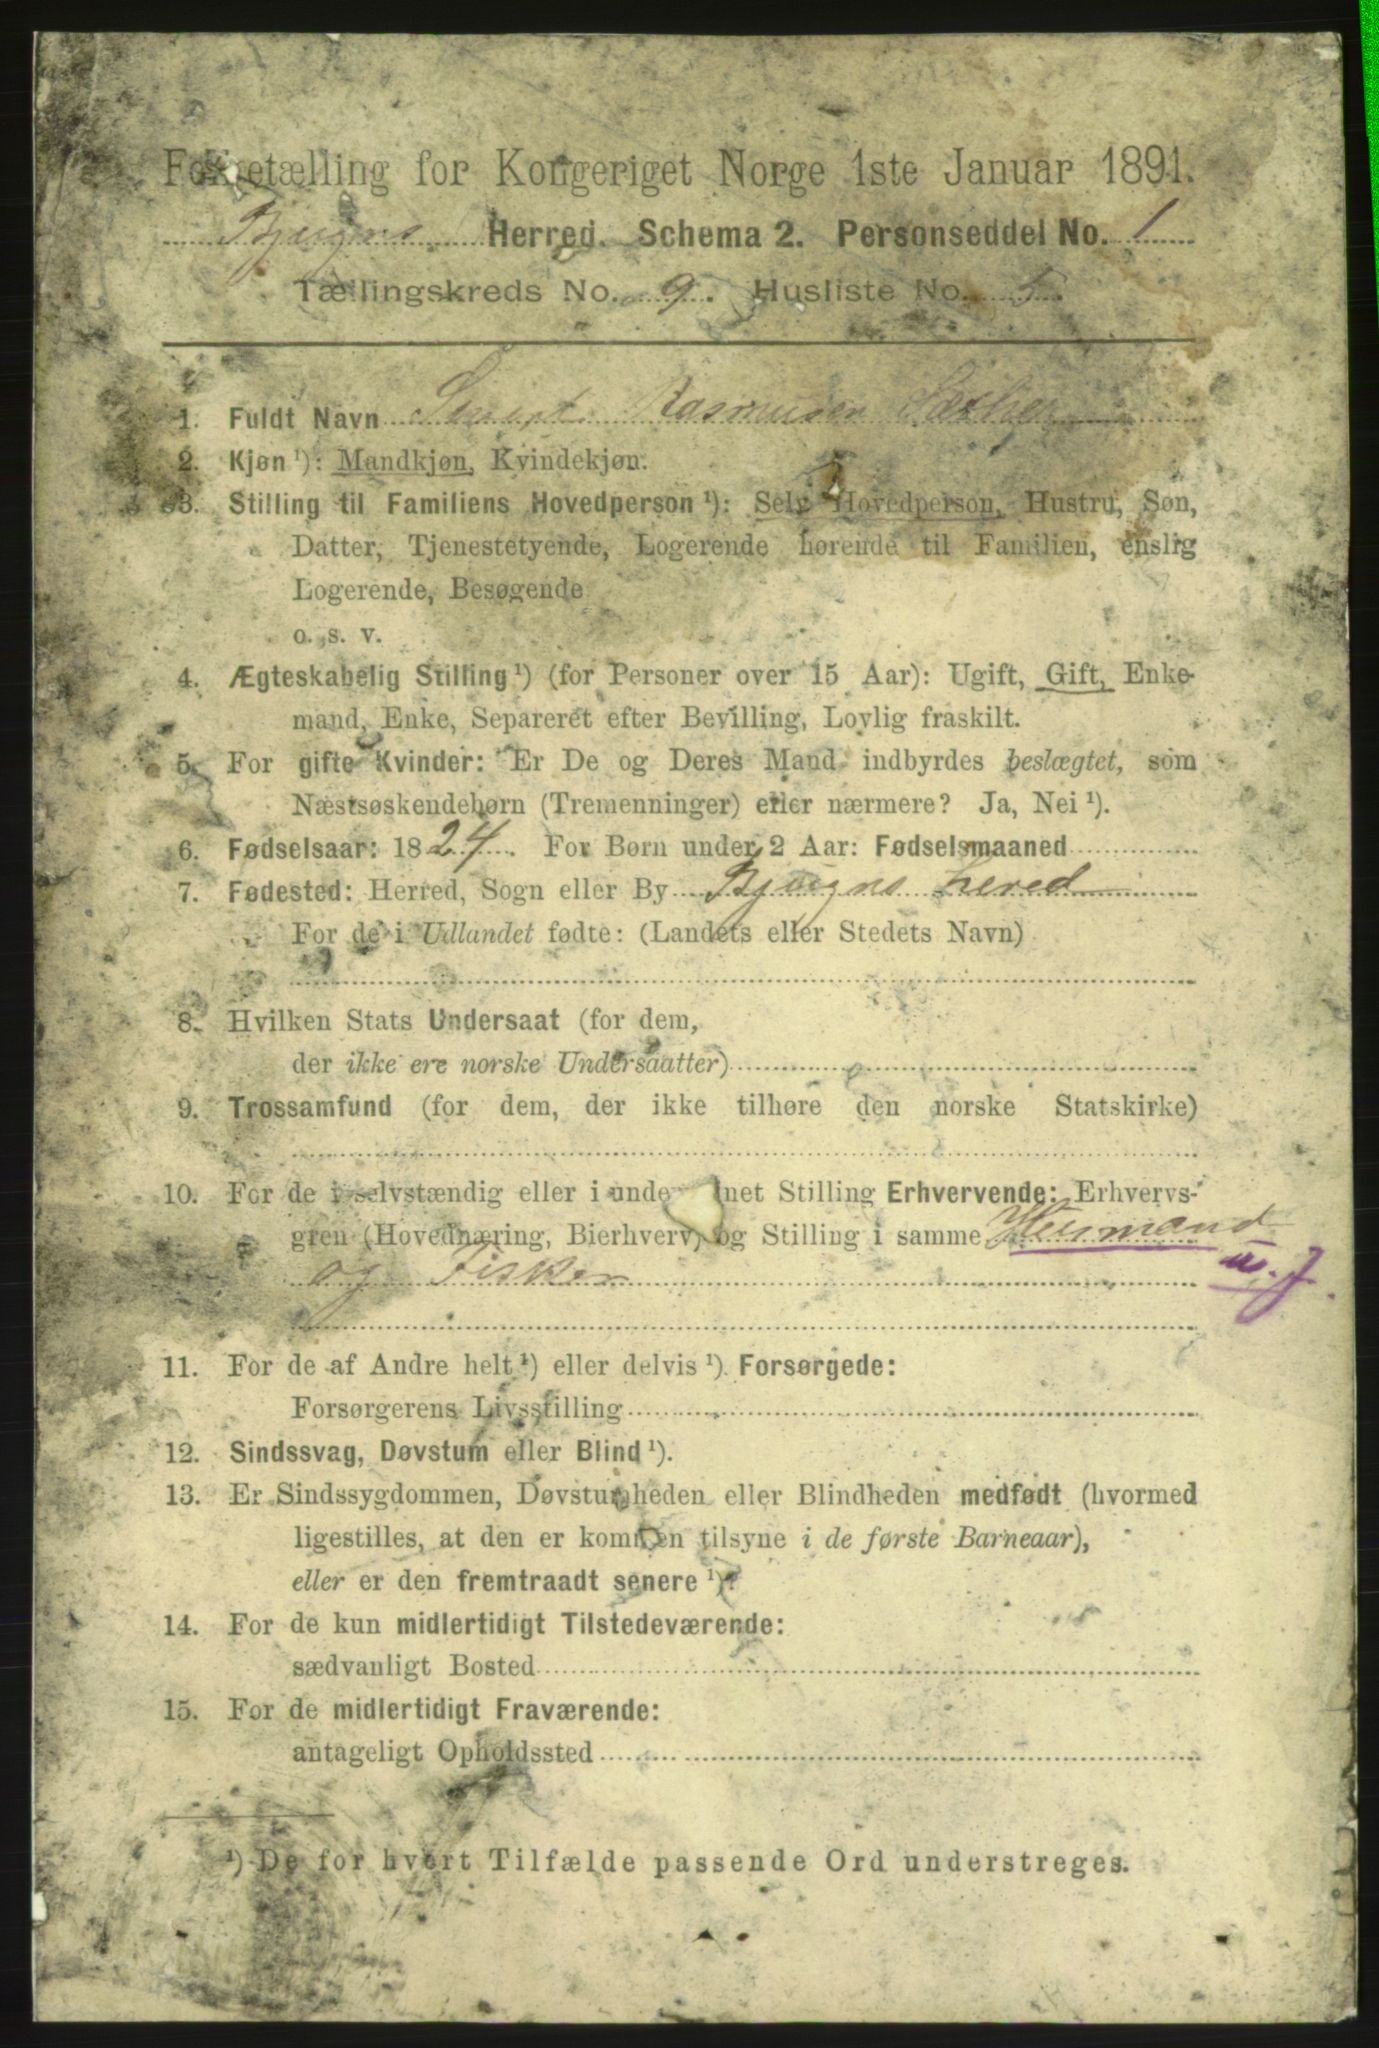 Folketælling for Kongeriget Norge 1ste Januar 1891.
Bjugns Herred. Schema 2. Personseddel No. 1
Tællingskreds No. 9. Husliste No. 5.
1. Fuldt Navn Rasmusen Sæther
2. Kjøn ¹): Mandkjøn, Kvindekjøn.
3. Stilling til Familiens Hovedperson ¹): Selv Hovedperson, Hustru, Søn,
Datter, Tjenestetyende, Logerende hørende til Familien, enslig
Logerende, Besøgende
o. s. v.
4. Ægteskabelig Stilling ¹) (for Personer over 15 Aar): Ugift, Gift, Enke-
mand, Enke, Separeret efter Bevilling, Lovlig fraskilt.
5. For gifte Kvinder: Er De og Deres Mand indbyrdes beslægtet, som
Næstsøskendebørn (Tremenninger) eller nærmere? Ja, Nei ¹).
6. Fødselsaar: 1824. For Børn under 2 Aar: Fødselsmaaned
7. Fødested: Herred, Sogn eller By Bjugns Hered
For de i Udlandet fødte: (Landets eller Stedets Navn)
8. Hvilken Stats Undersaat (for dem,
der ikke ere norske Undersaatter)
9. Trossamfund (for dem, der ikke tilhøre den norske Statskirke)
10. For de i selvstændig eller i underordnet Stilling Erhvervende: Erhvervs-
gren (Hovednæring, Bierhverv) og Stilling i samme Husmand
og Fisker m. J.
11. For de af Andre helt ¹) eller delvis ¹) Forsørgede:
Forsørgerens Livsstilling
12. Sindssvag, Døvstum eller Blind ¹).
13. Er Sindssygdommen, Døvstumheden eller Blindheden medfødt (hvormed
ligestilles, at den er kommen tilsyne i de første Barneaar),
eller er den fremtraadt senere ¹)?
14. For de kun midlertidigt Tilstedeværende:
sædvanligt Bosted
15. For de midlertidigt Fraværende:
antageligt Opholdssted
¹) De for hvert Tilfælde passende Ord understreges.